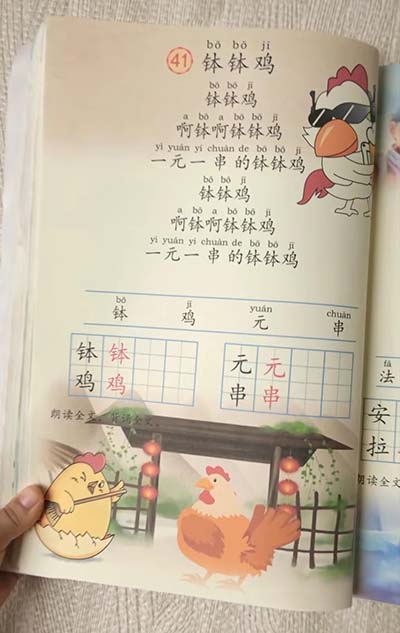 bō bō jī
41 钵钵鸡
bō bō jī
钵钵鸡
a bō a bō bō jī
啊钵啊钵钵鸡
yì yuán yí chuàn de bō bō jī
一元一串的钵钵鸡
bō bō jī
钵钵鸡
a bō a bō bō jī
啊钵啊钵钵鸡
yì yuán yí chuàn de bō bō jī
一元一串的钵钵鸡
bō jī yuán chuàn
钵 鸡 元 串
钵 钵 元 元
鸡 鸡 串 串
朗读全文。背诵全文。
fǎ
法
安
拉
朗读全文